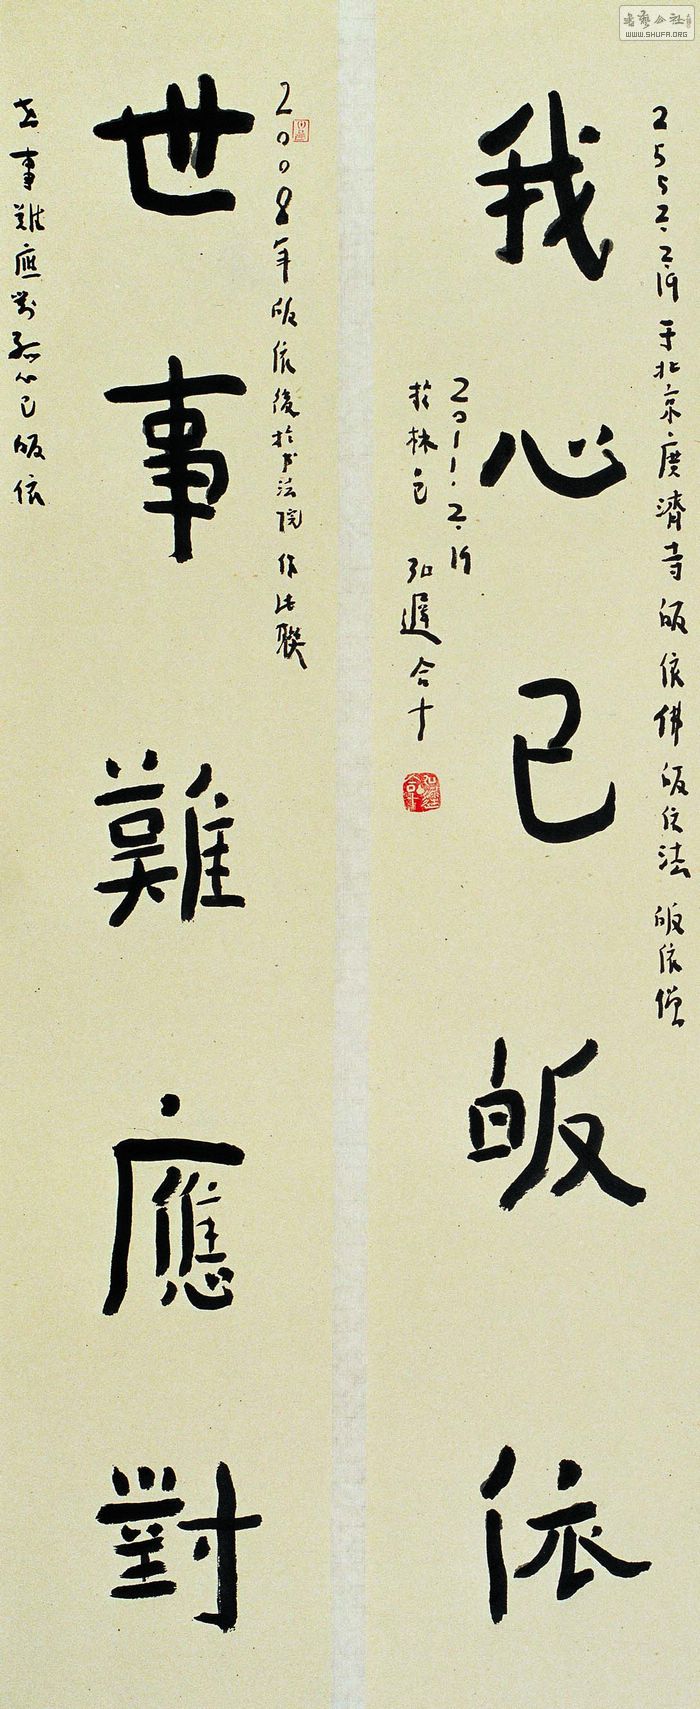 書藝公社
WWW.SHUFA.ORG
2552.2.19于北京廣濟寺皈依佛皈依法皈依僧
我心已皈依
2011.2.19
於林 弘遲合十
2008年皈依後於书法院作此聯
世事難應對
世事難應對我心已皈依